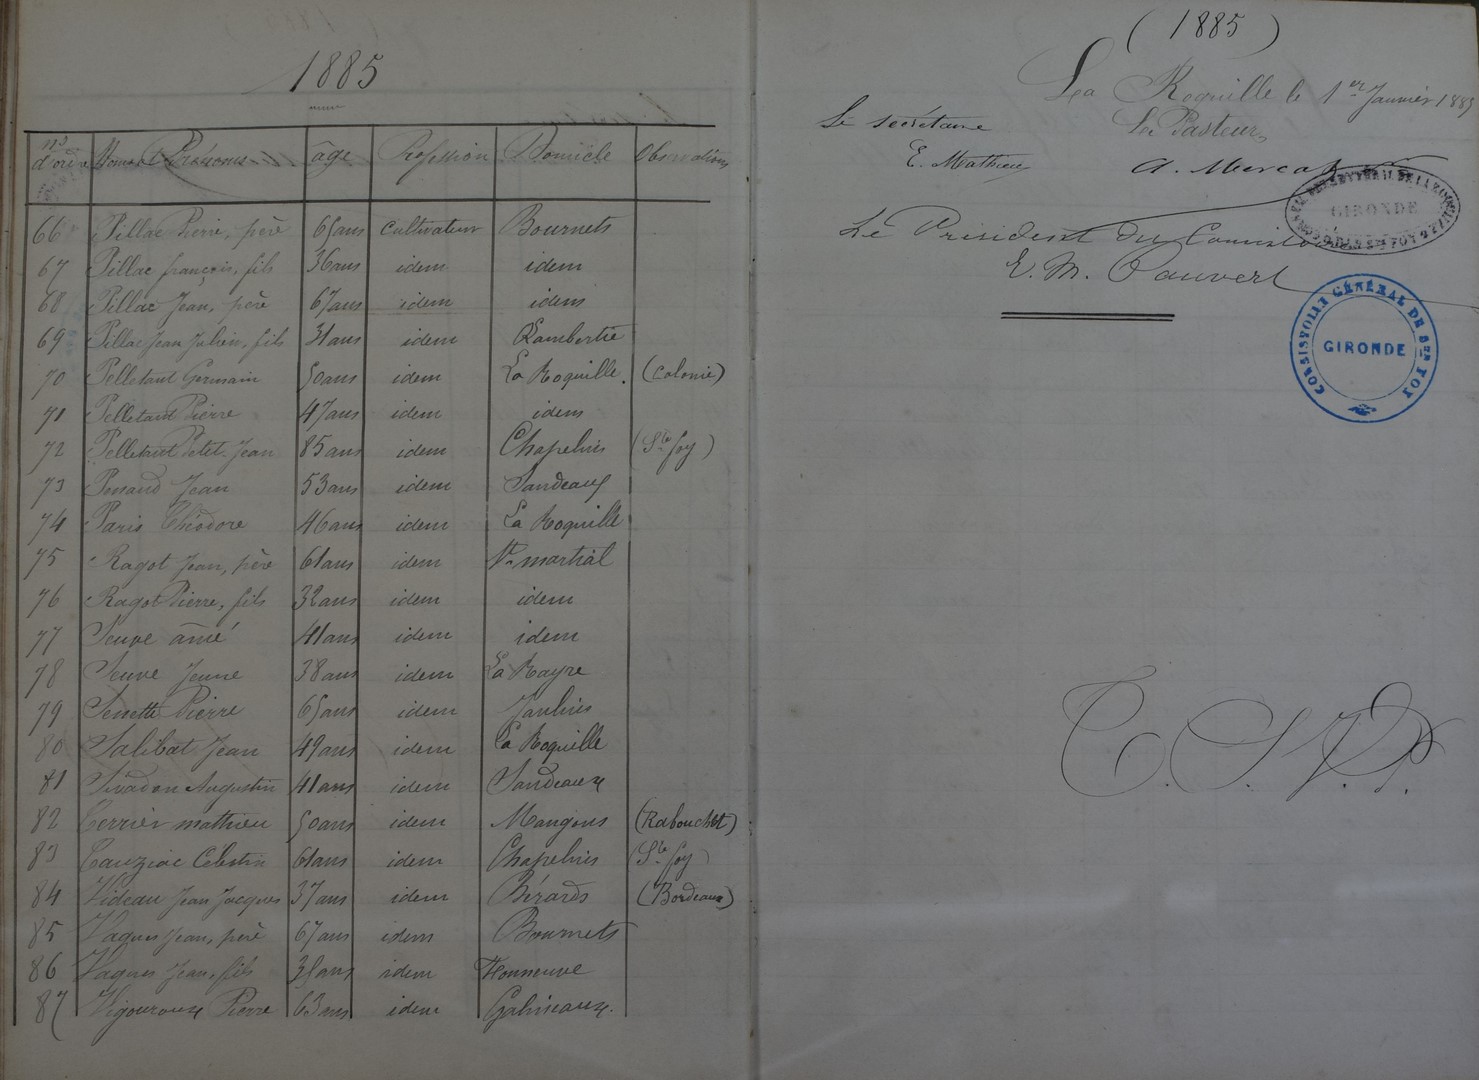 1885
nos d'ordre Noms et Prénoms âge Profession Domicile Observations
66 Pillac Pierre, père 65 ans cultivateur Bournets
67 Pillac françois, fils 36 ans idem idem
68 Pillac Jean, père 67 ans idem idem
69 Pillac Jean Julien, fils 31 ans idem
70 Pelletant Germain 50 ans idem La Roquille. (Colonie)
71 Pelletant Pierre 47 ans idem idem
72 Pelletant Petit Jean 85 ans idem Chapelins (Ste foy)
73 Jean 53 ans idem Sandeaux
74 Paris Théodore 46 ans idem La Roquille
75 Ragot Jean, père 61 ans idem St martial
76 Ragot Pierre, fils 32 ans idem idem
77 Seuve âmé 41 ans idem idem
78 Seuve Jeune 38 ans idem La Rayre
79 Pierre 65 ans idem
80 Salibat Jean 49 ans idem La Roquille
81 Augustin 41 ans idem Sandeaux
82 Terrier mathieu 50 ans idem Mangons (Rabouchet)
83 Tauziac Célestin 61 ans idem Chapelins (Ste foy)
84 Videau Jean Jacques 37 ans idem Bérards (Bordeaux)
85 Vaques Jean, père 67 ans idem Bournets
86 Vaques Jean, fils idem
87 Vigouroux Pierre 63 ans idem Galineaux.
(1885)
La Roquille le 1er Janvier 1885
Le secrétaire Le Pasteur,
E. Mathieu A. Mercat
GIRONDE
Le Président du Consistoire
E. M. Pauvert
CONSISTOIRE GÉNÉRAL DE STE FOY
GIRONDE
T.S.V.P.